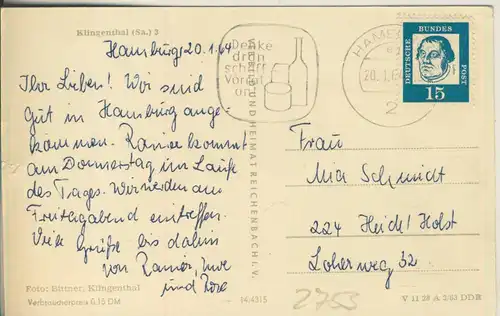 Klingenthal (Sa.) 3
Hamburg 20.1.64
Ihr Lieben! Wir sind
gut in Hamburg ange-
kommen. Rainer kommt
am Donnerstag im Laufe
des Tages. Wir werden am
Freitagabend eintreffen.
Viele Grüße bis dahin
von Rainer, Uwe
und Rose
Foto: Bittner, Klingenthal
Verbraucherpreis 0,15 DM
14/4315
UND HEIMAT REICHENBACH I. V.
Denke
dran
schaff
Vorrat
an
HAMB
20.1.64
2
DEUTSCHE BUNDESPOST
15
Frau
Mia Schmidt
224 Heide / Holst
Loherweg 32
2753
V 11 28 A 2/63 DDR